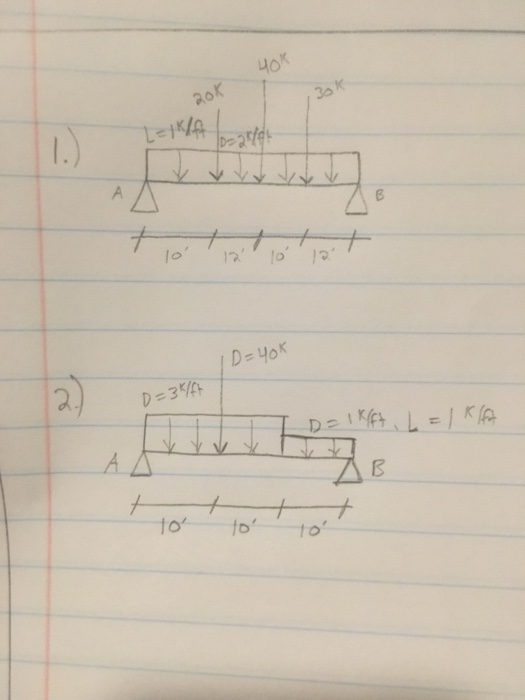 1.)
40K
20K
30K
L=1K/ft D=2K/ft
A B
10' 12' 10' 12'
2.)
D=40K
D=3K/ft
D=1K/ft, L=1K/ft
A B
10' 10' 10'